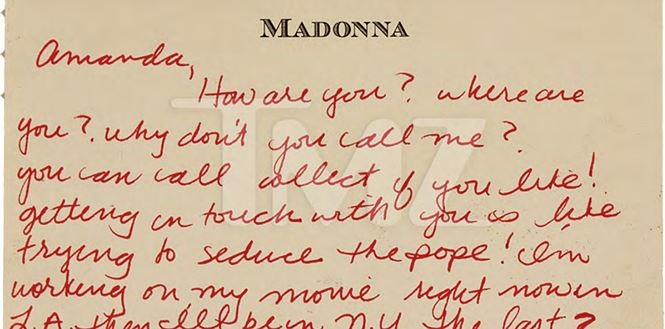 MADONNA
Amanda,
How are you? where are
you? why don't you call me?
you can call collect if you like!
getting in touch with you is like
trying to seduce the pope! I'm
working on my movie right now in
L.A. then I'll be in N.Y. the last 2
TMZ